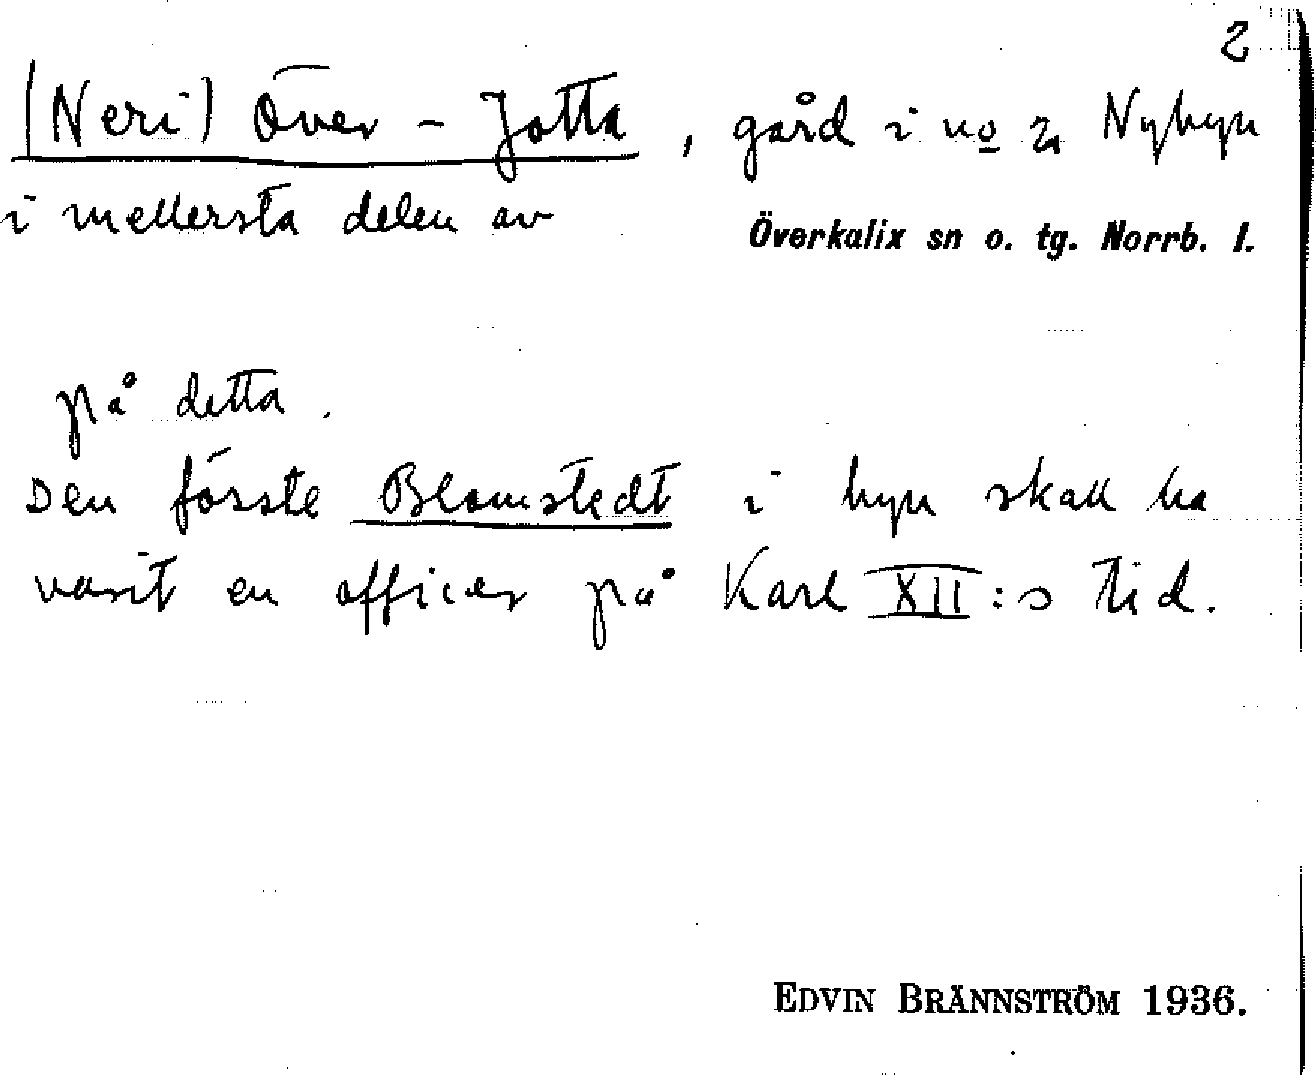 2
(Neri) Över-Jotta, gård i no 2 Nybyn
i mellersta delen av Överkalix sn o. tg. Norrb. l.
på detta.
Den förste Blomstedt i byn skall ha
varit en officer på Karl XII:s tid.
EDVIN BRÄNNSTRÖM 1936.